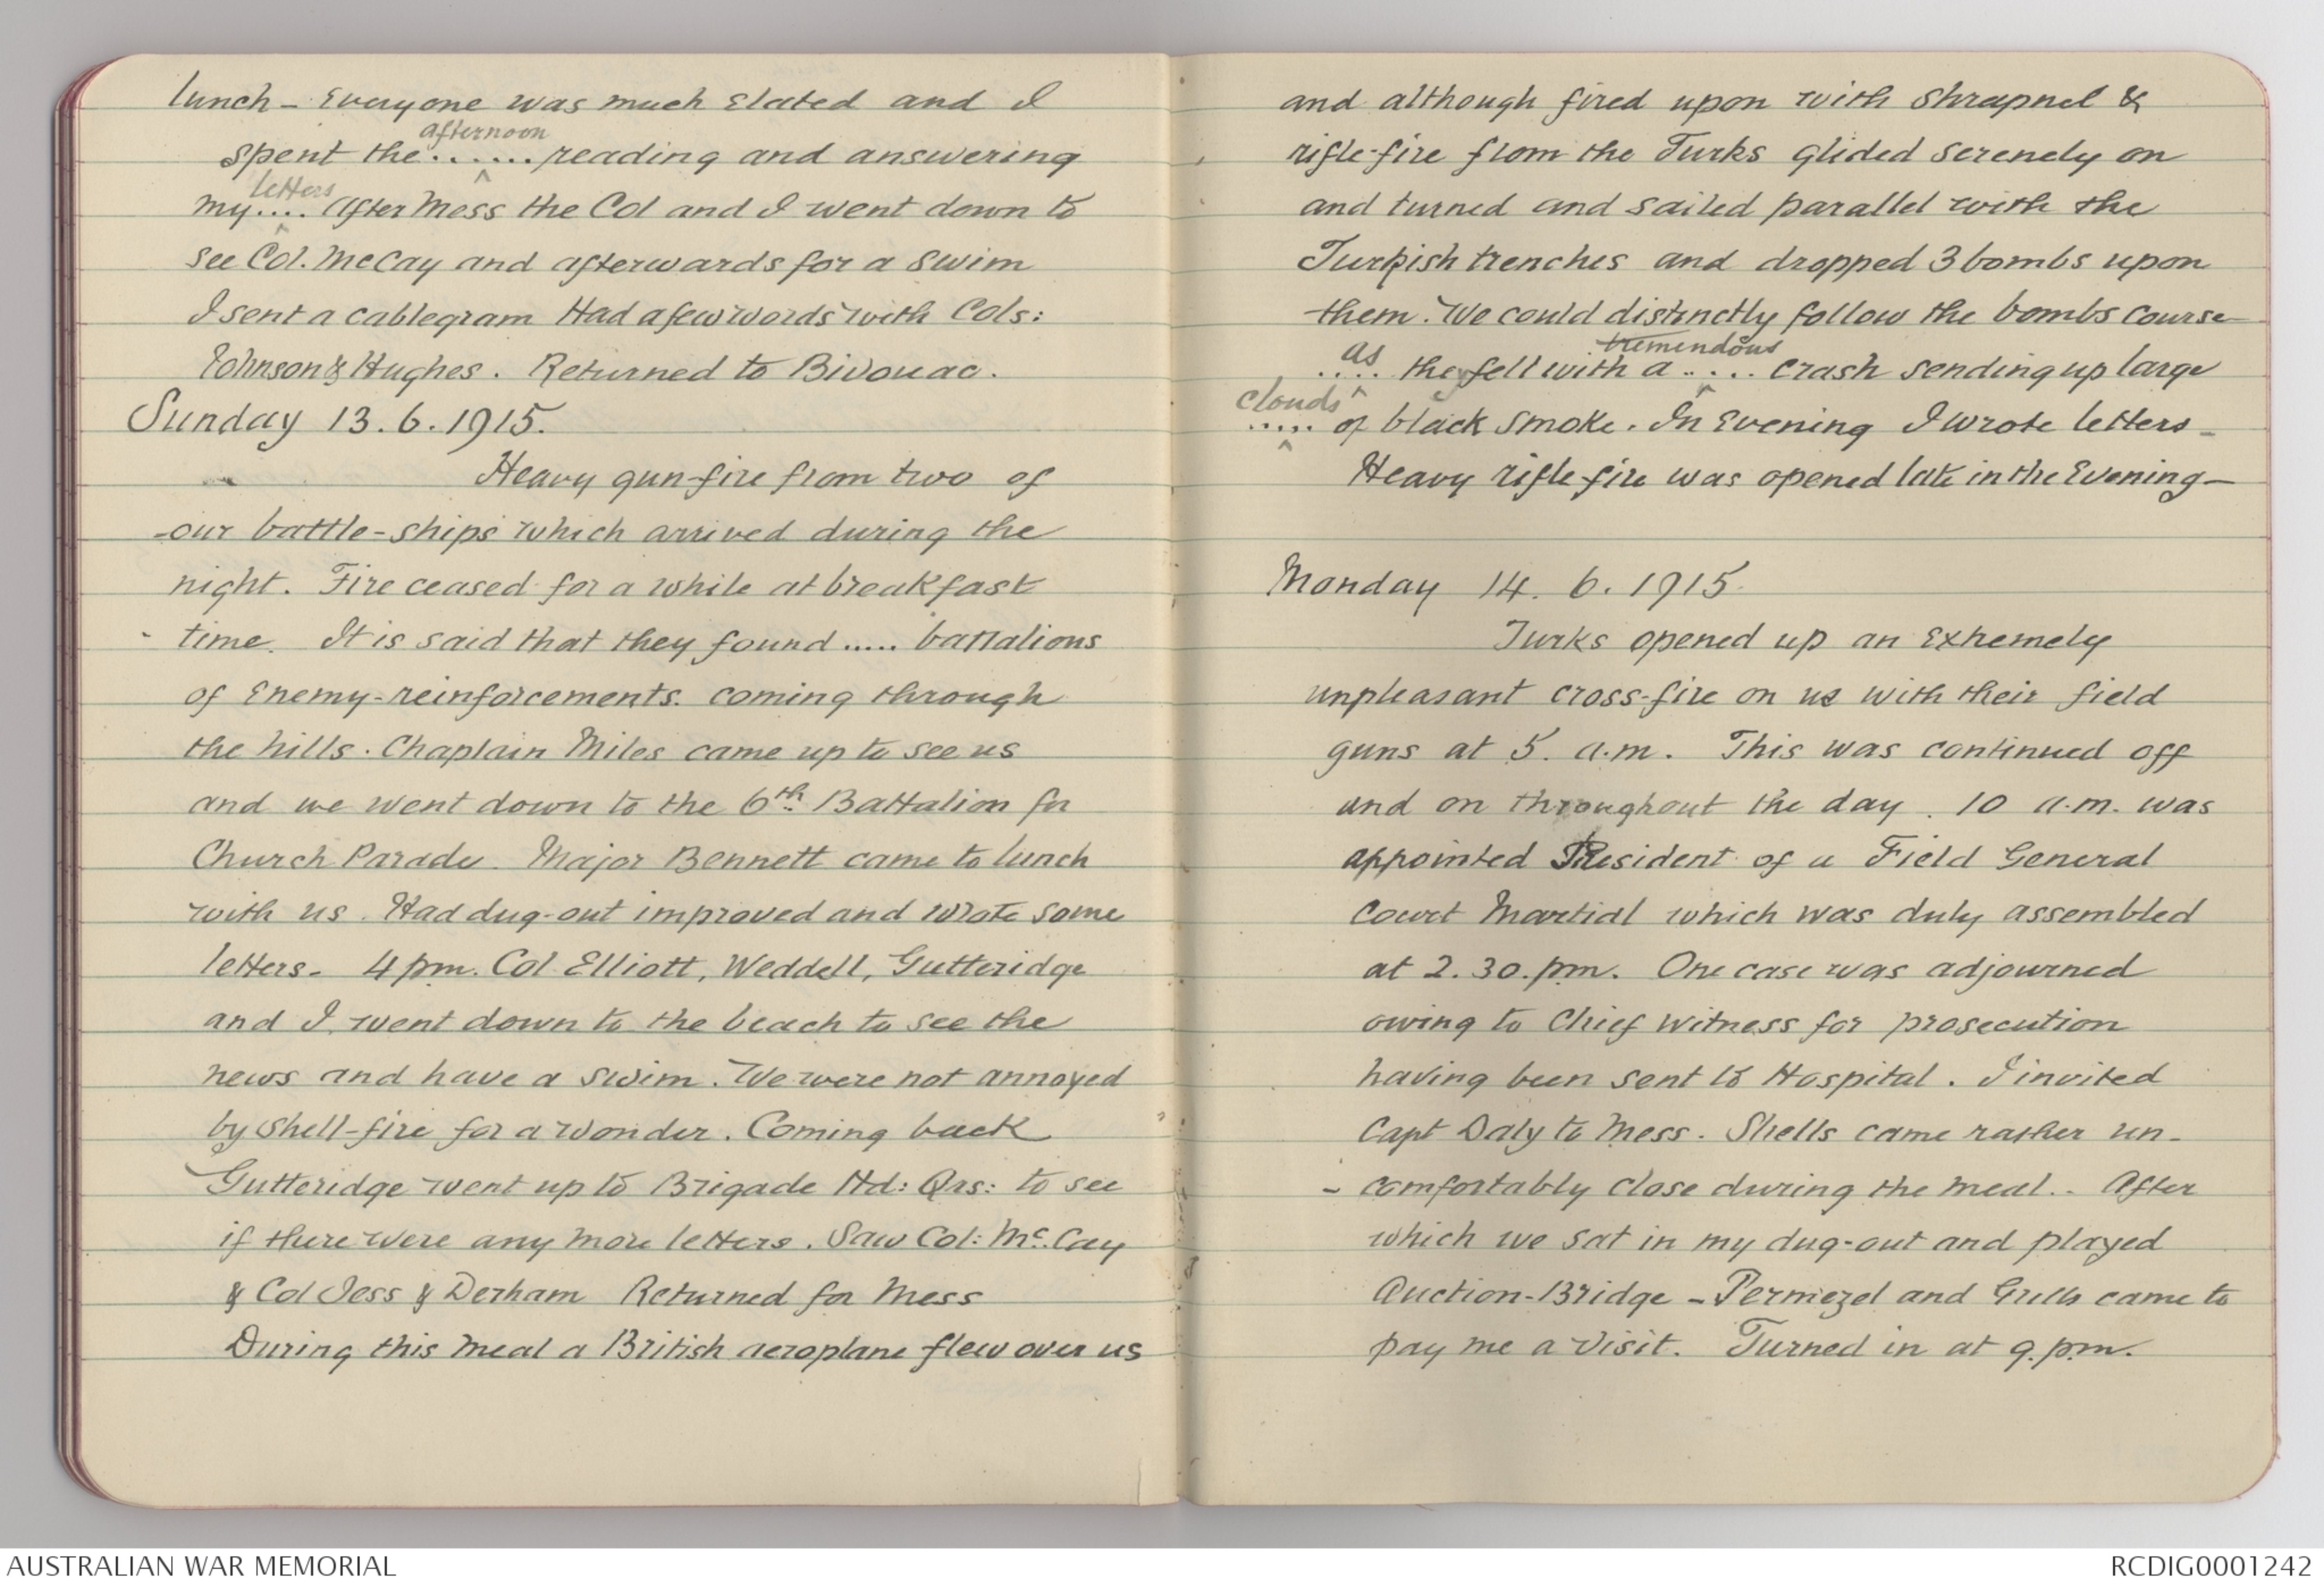 lunch - Everyone was much Elated and I
afternoon
spent the...... reading and answering
letters
my.... After Mess the Col and I went down to
see Col. McCay and afterwards for a swim
I sent a cablegram Had a few words with Cols:
Johnson & Hughes. Returned to Bivouac.
Sunday 13.6.1915.
Heavy gun-fire from two of
-our battle-ships which arrived during the
night. Fire ceased for a while at breakfast
- time. It is said that they found ..... battalions
of Enemy-reinforcements. coming through
the hills. Chaplain Miles came up to see us
and we went down to the 6th Battalion for
Church Parade. Major Bennett came to lunch
with us. Had dug-out improved and wrote some
letters- 4 pm. Col Elliott, Weddell, Gutteridge
and I went down to the beach to see the
news and have a swim. We were not annoyed
by shell-fire for a wonder. Coming back
Gutteridge went up to Brigade Hd: Qrs: to see
if there were any more letters. Saw Col: Mc.Cay
& Col Jess & Derham Returned for Mess
During this meal a British aeroplane flew over us
and although fired upon with shrapnel &
rifle-fire from the Turks glided serenely on
and turned and sailed parallel with the
Turkish trenches and dropped 3 bombs upon
them. We could distinctly follow the bombs course
as tremendous
.... they fell with a ..... crash sending up large
clouds
..... of black smoke. In Evening I wrote letters -
Heavy rifle-fire was opened late in the Evening -
Monday 14. 6. 1915.
Turks opened up an Extremely
unpleasant cross-fire on us with their field
guns at 5. a.m. This was continued off
and on throughout the day. 10 a.m. was
appointed President of a Field General
Court Martial which was duly assembled
at 2.30.pm. One case was adjourned
owing to Chief Witness for prosecution
having been sent to Hospital. I invited
Capt Daly to Mess. Shells came rather un-
- comfortably close during the meal.. After
which we sat in my dug-out and played
Auction-Bridge - Permezel and Grills came to
pay me a visit. Turned in at 9.pm.
AUSTRALIAN WAR MEMORIAL
RCDIG0001242